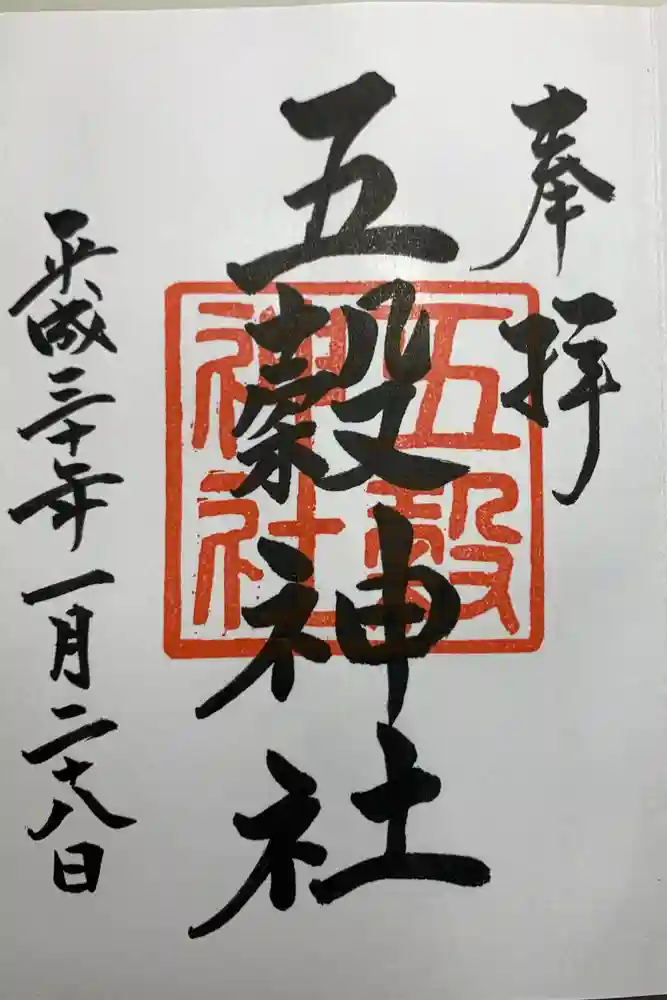 奉拝
五穀神社
五穀
神社
平成三十年一月二十八日